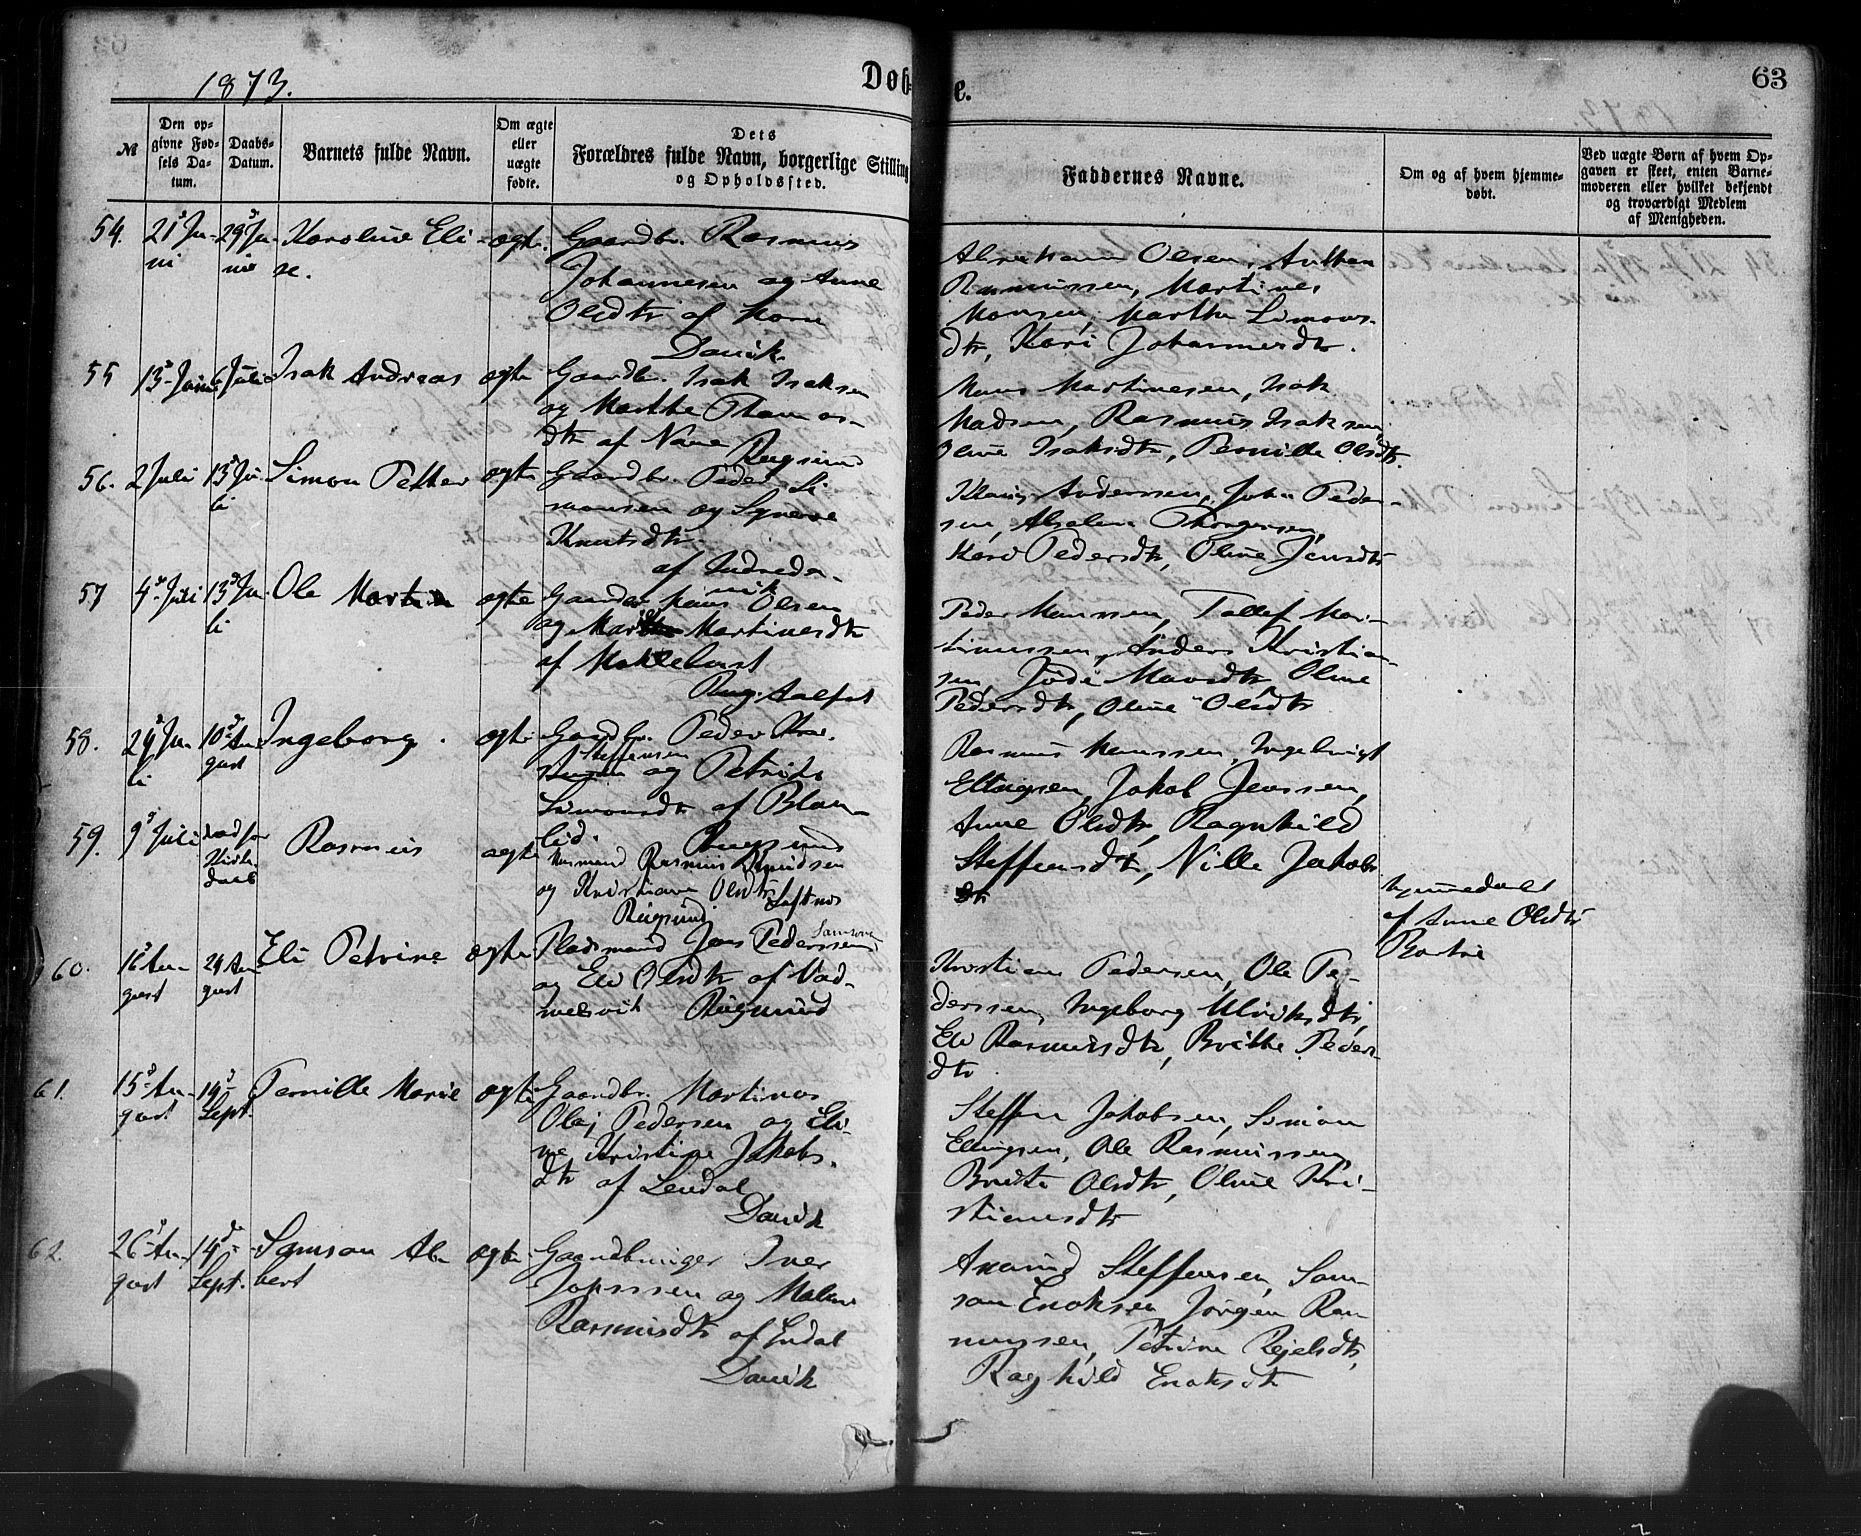 1873.
Døb
e.
63
№
Den op-
givne Fød-
sels Da-
tum.
Daabs-
Datum.
Barnets fulde Navn.
Om ægte
eller
uægte
fødte.
Dets
Forældres fulde Navn, borgerlige Stilling
og Opholdssted.
Faddernes Navne.
Om og af hvem hjemme-
døbt.
Ved uægte Børn af hvem Op-
gaven er skeet, enten Barne-
moderen eller hvilket bekjendt
og troværdigt Medlem
af Menigheden.
54. 21 Ju- 29 Ju- Karoline Eli- ægte. Gaardbr. Rasmus
ni ni se. Johannesen og Anne
Olsdtr af
Davik
Abraham Olsen, Anthon
Rasmussen, Martines
Monsen, Marthe Simons-
dtr, Kari Johannesdtr.
55 13 Juni 6 Juli Isak Andreas ægte Gaardbr. Isak Isaksen
og Marthe Thomas-
dtr af Nave
Rugsund
Mons Martinesen, Isak
Madsen, Rasmus Isaksen
Oline Isaksdtr, Pernille Olsdtr.
56. 2 Juli 13 Ju- Simon Petter ægte Gaardbr. Peder Si-
li monsen og Synneve
Knutsdtr.
af Indrede-
vik
Andersen, John Peder-
sen, Thorgersen,
Kari Pedersdtr, Oline Jensdtr
57 4 Juli 13 Ju- Ole Martin ægte Gaardbr. Hans Olsen
li og Martinesdtr
af Maklebust
Rug. Aalfot
Peder Hanssen, Tollef Mar-
tinussen, Anders Kristian-
sen, Oline
Pedersdtr, Oline Olsdtr
58. 29 Ju- 10 Au- Ingeborg. ægte Gaardbr. Peder
li gust Steffensen
og Petrikke
Simonsdtr af Blaa-
lid. Rugsund
Rasmus Hanssen, Ingebrigt
Ellingsen, Jakob Jenssen,
Anne Olsdtr, Ragnhild
Steffensdtr, Nille Jakobs
dtr
59. 9 Juli død før Rasmus ægte Husmand Rasmus Knudsen
Kirke- og Kristiane Olsdtr
daab Rugsund
hjemmedøbt
af Anne Olsdtr
60. 16 Au- 24 Au- Eli Petrine ægte Pladsmand Jens Pederssen
gust gust Samson
og Eli Olsdtr af Vad-
melsvik Rugsund
Kristian Pedersen, Ole Pe-
derssen, Ingeborg Ulriksdtr,
Eli Rasmusdtr, Brithe Peders-
dtr
61. 15 Au- 14 Pernille Marie ægte Gaardbr. Martinus
gust Sept. Olaj Pedersen og Eli-
ne Kristine Jakobs-
dtr af Lendal
Davik
Steffen Jakobsen, Simon
Ellingsen, Ole Rasmussen,
Brite Olsdtr, Oline Kri-
stiansdtr
62. 26 Au- 14 Samson Al- ægte Gaardbruger Iver
gust Sept. bert Jonssen og Malene
Rasmusdtr af Endal
Davik
Amund Steffensen, Sam-
son Enoksen, Jørgen Ras-
mussen, Petrine Rejelsdtr,
Raghild Enoksdtr